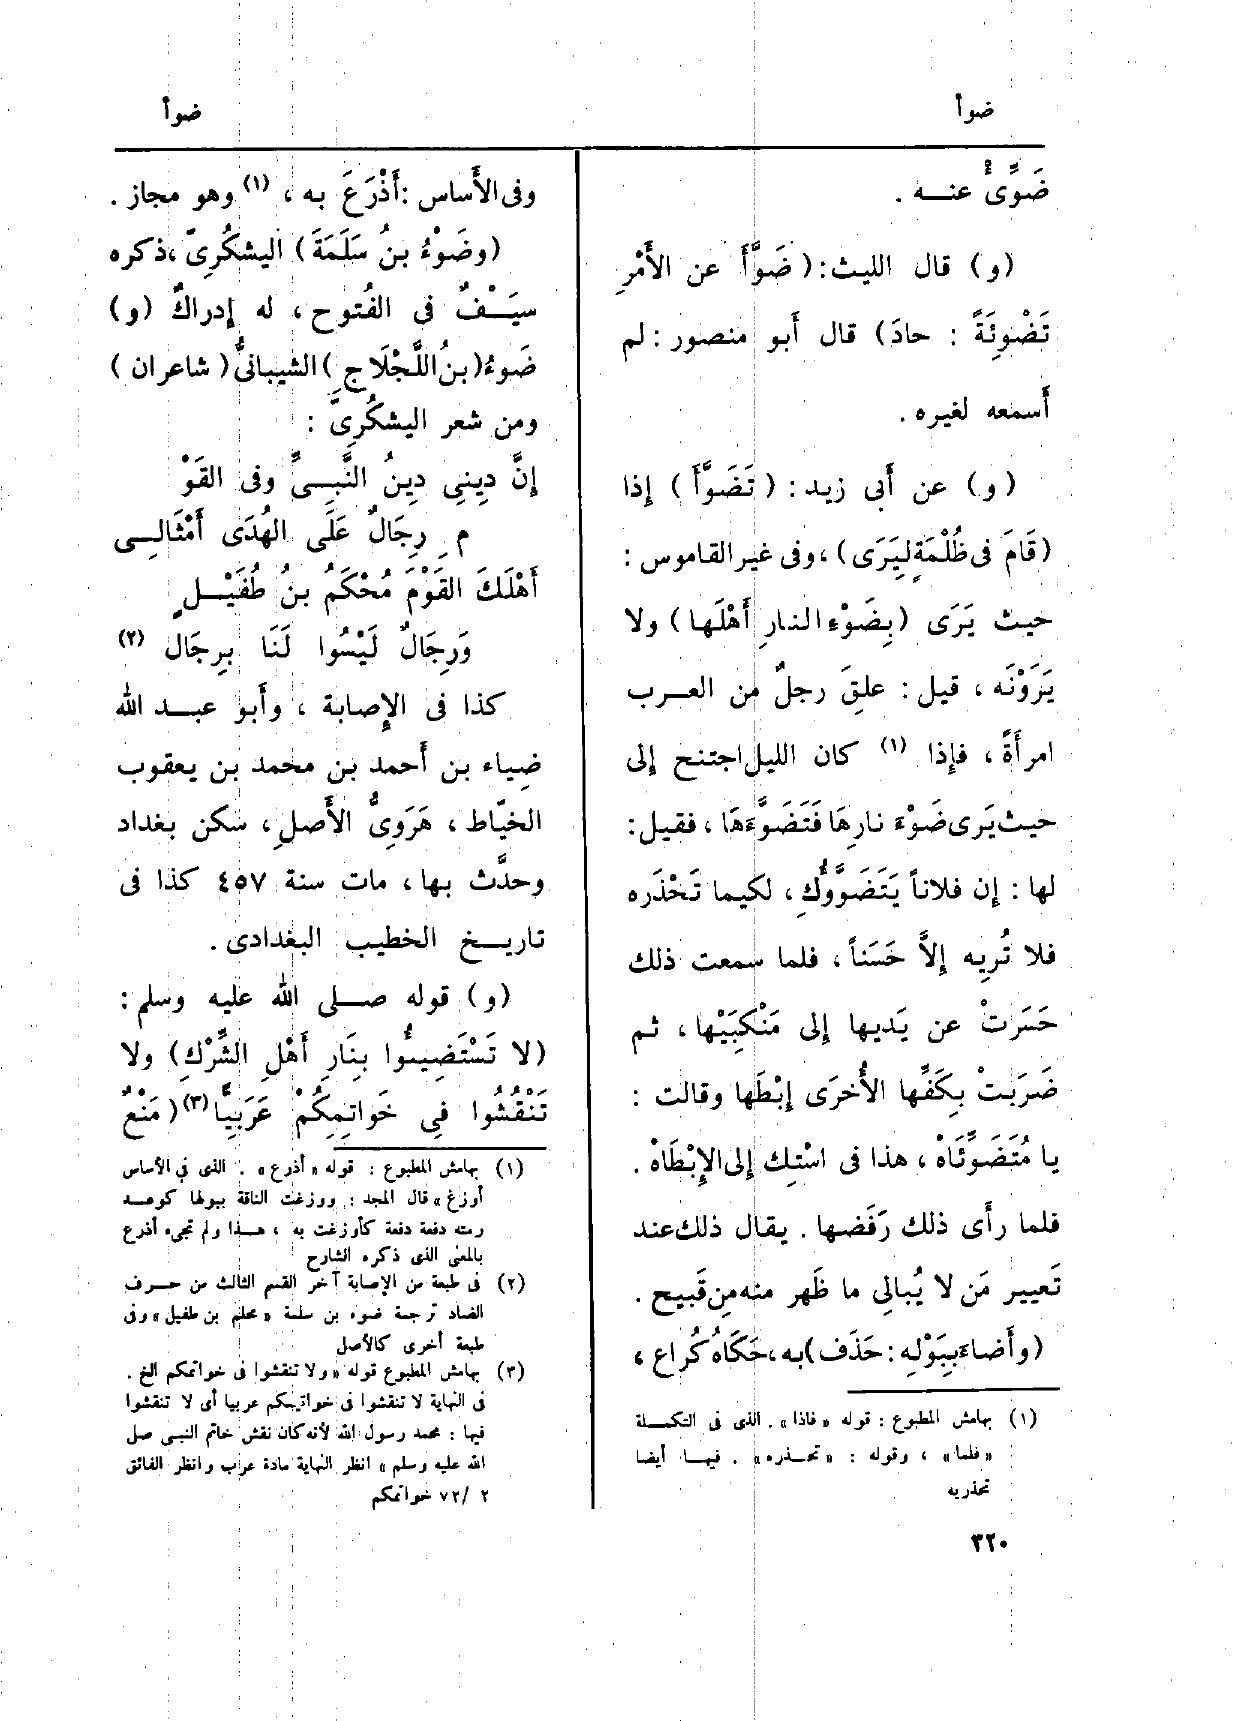 ضوأ
ضوأ
ضَوِّئْ عنــه .
(و) قال الليث: (ضَوَّأَ عن الأَمْرِ
تَضْوِئَةً : حادَ) قال أَبو منصور: لم
أَسمعه لغيره .
(و) عن أَبي زيد: (تَضَوَّأَ) إِذا
(قَامَ فى ظُلْمَةٍ لِيَرَى)، وفى غير القاموس :
حيث يَرَى (بِضَوْءِ النارِ أَهْلَها) ولا
يَرَوْنَه ، قيل : علِقَ رجلٌ من العرب
امرأَةً ، فإِذا (١) كان الليل اجتنح إِلى
حيث يَرى ضَوْءَ نارِها فَتَضَوَّءَهَا ، فقيل :
لها : إِن فلاناً يَتَضَوَّؤُكِ ، لكيما تَحْذَره
فلا تُرِيه إِلاَّ حَسَناً ، فلما سمعت ذلك
حَسَرَتْ عن يَديها إِلى مَنْكِبَيْها ، ثم
ضَرَبَتْ بِكَفِّها الأُخرَى إِبْطَها وقالت :
يا مُتَضَوِّئَاهْ ، هذا فى اسْتِك إِلى الإِبْطَاهْ .
فلما رأَى ذلك رَفَضها . يقال ذلك عند
تَعيير مَن لا يُبالِي ما ظَهر منه مِن قَبيح .
(وأَضاءَ بِبَوْلِهِ : حَذَف) به ، حَكَاهُ كُراع ،
(١) بهامش المطبوع : قوله «فاذا» . الذى فى التكملة
«فلما» ، وقوله : «تحذره» . فيها أيضا
تحذريه
وفى الأَساس : أَذْرَعَ به ، (١) وهو مجاز .
(وضَوْءُ بنُ سَلَمَةَ) اليشكُرِىّ ، ذكره
سيَفٌ فى الفُتوح ، له إِدراكٌ (و)
ضَوءُ (بنُ اللَّجْلَاجِ) الشيبانىُّ (شاعران)
ومن شعر اليشكُرِىّ :
إِنَّ دِينِى دِينُ النَّبِىِّ وفى القَوْ
مِ رِجَالٌ عَلَى الهُدَى أَمْثَالِى
أَهْلَكَ القَوْمَ مُحْكَمُ بنُ طُفَيْلٍ
وَرِجَالٌ لَيْسُوا لَنَا بِرِجَالِ (٢)
كذا فى الإِصابة ، وأَبو عبد الله
ضِياء بن أَحمد بن محمد بن يعقوب
الخيّاط ، هَرَوِىُّ الأَصلِ ، سكن بغداد
وحدَّث بها ، مات سنة ٤٥٧ كذا فى
تاريخ الخطيب البغدادى .
(و) قوله صلى الله عليه وسلم :
(لا تَسْتَضِيئُوا بِنَارِ أَهْلِ الشِّرْكِ) ولا
تَنْقُشُوا فِى خَواتِمِكُمْ عَرَبِيًّا (٣) (مَنْعٌ
(١) بهامش المطبوع : قوله «أذرع» . الذى فى الأساس
أوزغ » قال المجد : ووزغت الناقة ببولها كوعد
رمت دفعة دفعة كأوزغت به ، هذا ولم تجىء أذرع
بالمعنى الذى ذكره الشارح
(٢) فى طبعة من الإصابة آخر القسم الثالث من حرف
الضاد ترجمة ضوء بن سلمة «محلم بن طفيل» وفى
طبعة أخرى كالأصل
(٣) بهامش المطبوع قوله «ولا تنقشوا فى خواتمكم الخ .
فى النهاية لا تنقشوا فى خواتيمكم عربيا أى لا تنقشوا
فيها : محمد رسول الله لأنه كان نقش خاتم النبى صلى
الله عليه وسلم » انظر النهاية مادة عرب وانظر الفائق
٢ /٧٢ خواتمكم
٣٢٠